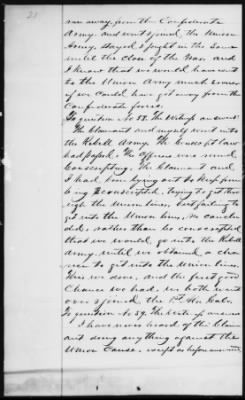 21
ran away from the Confederate
Army and went & joined the Union
Army, stayed & fought in the same
until the close of the War and
I know that we would have went
to the Union Army much sooner
if we could have got away from the
Confederate force.
To question No 58. The Witness answers
The Claimant and myself went into
the Rebell Army. The Conscript law
had passed. The Officers was
conscripting. The Claimant and
I had been lying out to keep from
being conscripted, trying to get thro
ugh the Union lines, but failing to
get into the Union lines, we conclu
ded, rather than be conscripted
that we would go into the Rebell
Army until we obtained a cha
nce to get into the Union lines.
This we done, and the first good
Chance we had, we both went
over & joined the 1st Ala Cav.
To question No 59. The Witness answers
I have never heard of the Claim
ant doing anything against the
Union Cause, except as before answered